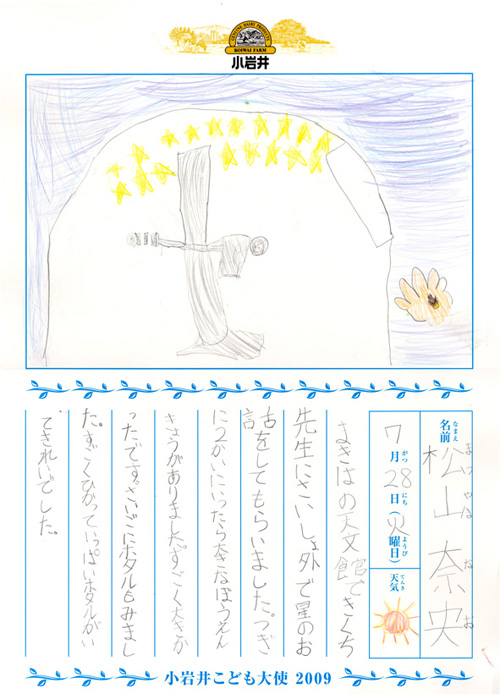 GENUINE DAIRY PRODUCTS
KOIWAI FARM
小岩井
なまえ
名前
まつやま なお
松山奈央
がつ にち ようび
7月28日(火曜日)
てんき
天気
まきばの天文館できくち
先生にさいしょ外で星のお
話をしてもらいました。つぎ
に2かいにいったら大きなぼうえん
きょうがありました。すごく大きか
ったです。さいごにホタルもみまし
た。すごくひかっていっぱいホタルがい
てきれいでした。
小岩井こども大使 2009